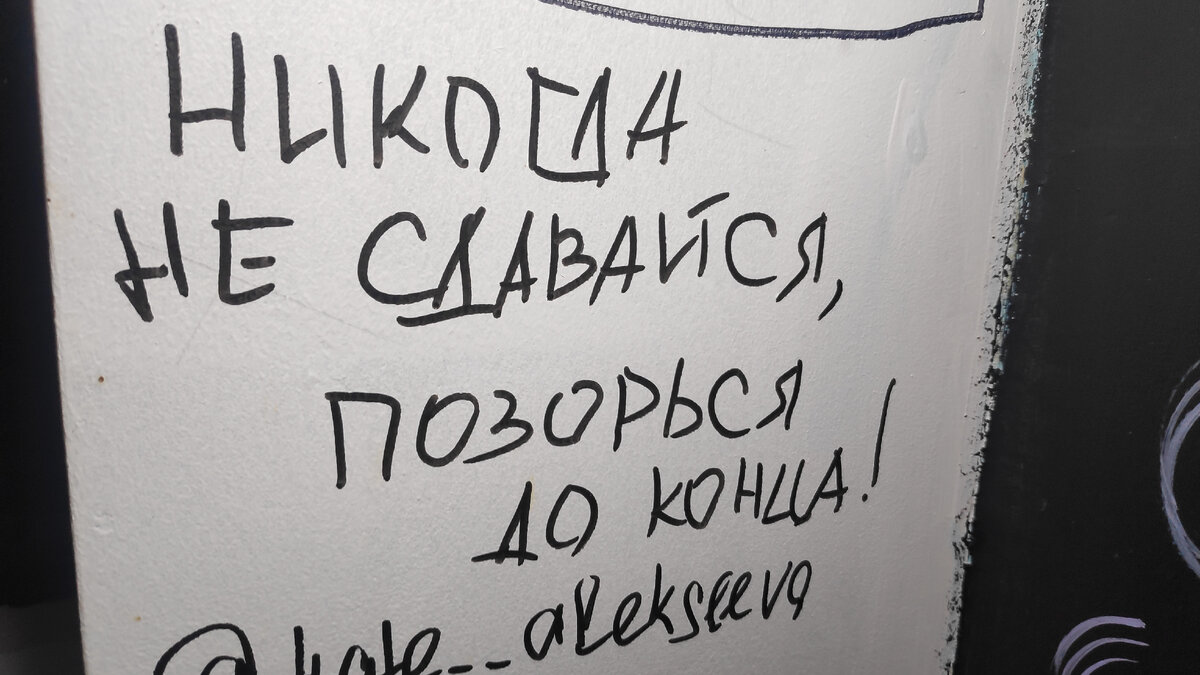 НИКОГДА
НЕ СДАВАЙСЯ,
ПОЗОРЬСЯ
ДО КОНЦА!
@kate__alekseeva